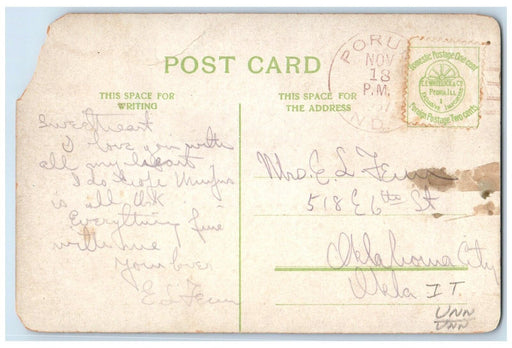 POST CARD
THIS SPACE FOR
WRITING
THIS SPACE FOR
THE ADDRESS
PORU
NOV
18
P.M.
Domestic Postage One cent
PEORIA, ILL.
Foreign Postage Two cents
Sweetheart
I love you with
all my heart
I do hope
is all O.K.
Everything fine
with me
Your lover
E L Fenn
Mrs. E. L Fenn
518 E 6th St
Oklahoma City
Okla I T.
UNN
UNN